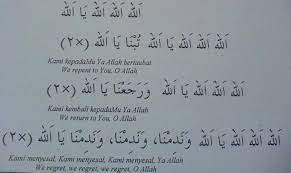 اَللهُ اَللهُ اَللهُ يَا اَللهُ
اَللهُ اَللهُ اَللهُ يَا اَللهُ تُبْنَا يَا اَللهُ (٢×)
Kami kepadaMu Ya Allah bertaubat
We repent to You, O Allah
اَللهُ اَللهُ اَللهُ يَا اَللهُ وَرَجَعْنَا يَا اَللهُ (٢×)
Kami kembali kepadaMu Ya Allah
We return to You, O Allah
اَللهُ اَللهُ اَللهُ يَا اَللهُ وَنَدِمْنَا، وَنَدِمْنَا، وَنَدِمْنَا يَا اَللهُ (٢×)
Kami menyesal, Kami menyesal, Kami menyesal, Ya Allah
We regret, we regret, we regret, O Allah